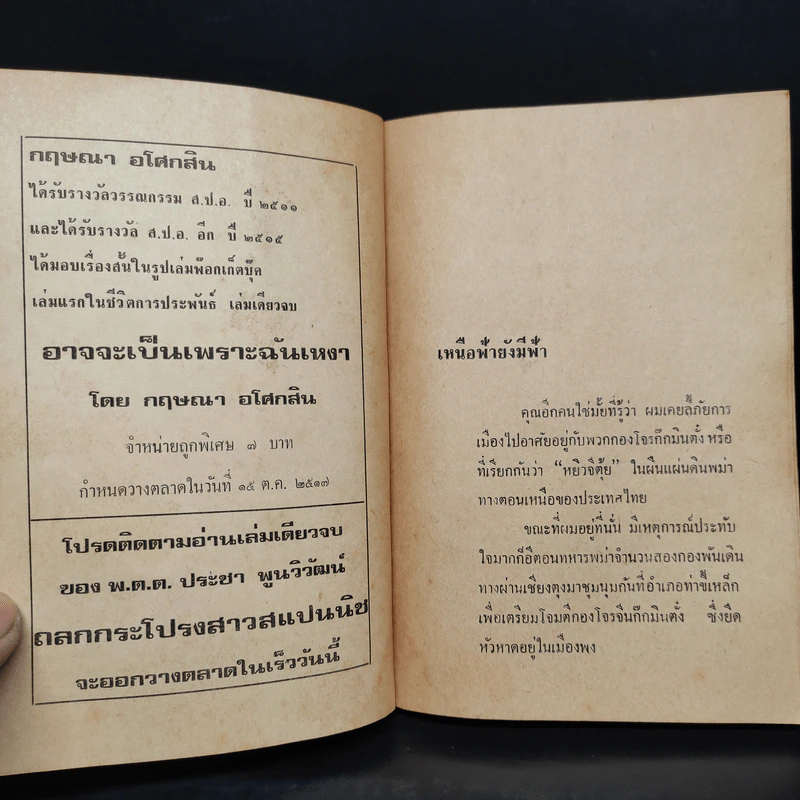 กฤษณา อโศกสิน
ได้รับรางวัลวรรณกรรม ส.ป.อ. ปี ๒๕๑๑
และได้รับรางวัล ส.ป.อ. อีก ปี ๒๕๑๕
ได้มอบเรื่องสั้นในรูปเล่มพ๊อกเก็ตบุ๊ค
เล่มแรกในชีวิตการประพันธ์ เล่มเดียวจบ
อาจจะเป็นเพราะฉันเหงา
โดย กฤษณา อโศกสิน
จำหน่ายถูกพิเศษ ๗ บาท
กำหนดวางตลาดในวันที่ ๑๕ ต.ค. ๒๕๑๗
โปรดติดตามอ่านเล่มเดียวจบ
ของ พ.ต.ต. ประชา พูนวิวัฒน์
ถลกกระโปรงสาวสแปนนิช
จะออกวางตลาดในเร็ววันนี้
เหนือฟ้ายังมีฟ้า
คุณอีกคนใช่มั้ยที่รู้ว่า ผมเคยลี้ภัยการ
เมืองไปอาศัยอยู่กับพวกกองโจรก๊กมินตั๋ง หรือ
ที่เรียกกันว่า "หยิวจีตุ้ย" ในผืนแผ่นดินพม่า
ทางตอนเหนือของประเทศไทย
ขณะที่ผมอยู่ที่นั่น มีเหตุการณ์ประทับ
ใจมากก็อีตอนทหารพม่าจำนวนสองกองพันเดิน
ทางผ่านเชียงตุงมาชุมนุมกันที่อำเภอท่าขี้เหล็ก
เพื่อเตรียมโจมตีกองโจรจีนก๊กมินตั๋ง ซึ่งยึด
หัวหาดอยู่ในเมืองพง